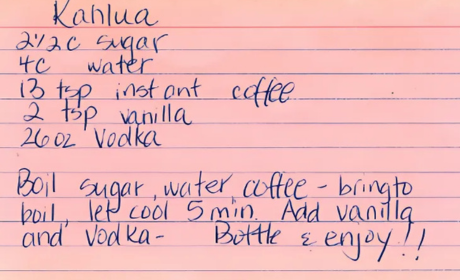 Kahlua
2 1/2 c sugar
4c water
13 tsp instant coffee
2 tsp vanilla
26oz Vodka
Boil sugar, water coffee - bring to
boil, let cool 5 min. Add vanilla
and vodka - Bottle & enjoy!!